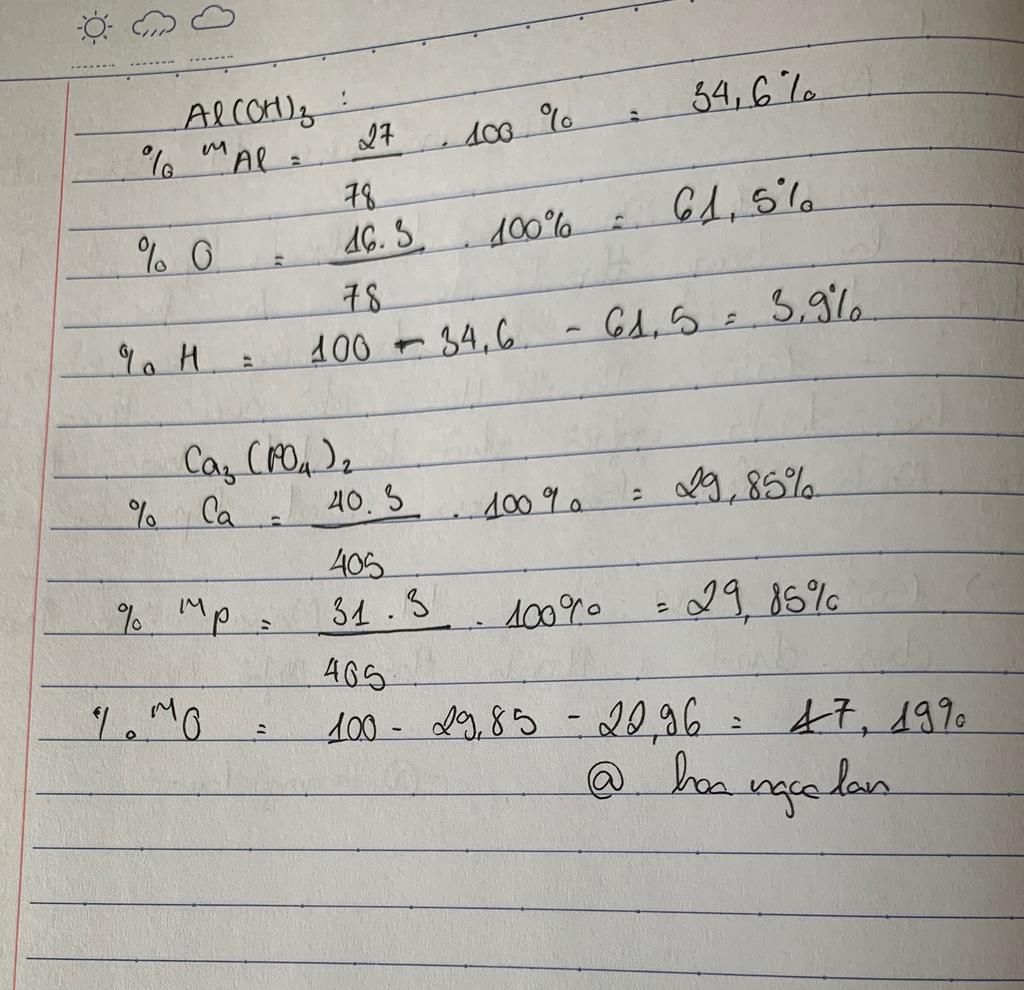 Al(OH)₃ :
% mAl = 27/78 . 100 % = 34,6%
% O = 16.3/78 . 100% = 61,5%
% H = 100 - 34,6 - 61,5 = 3,9%
Ca₃(PO₄)₂
% Ca = 40.3/405 . 100% = 29,85%
% mp = 31.3/405 . 100% = 29,85%
% mO = 100 - 29,85 - 22,96 = 47,19%
@ hoa ngoc lan